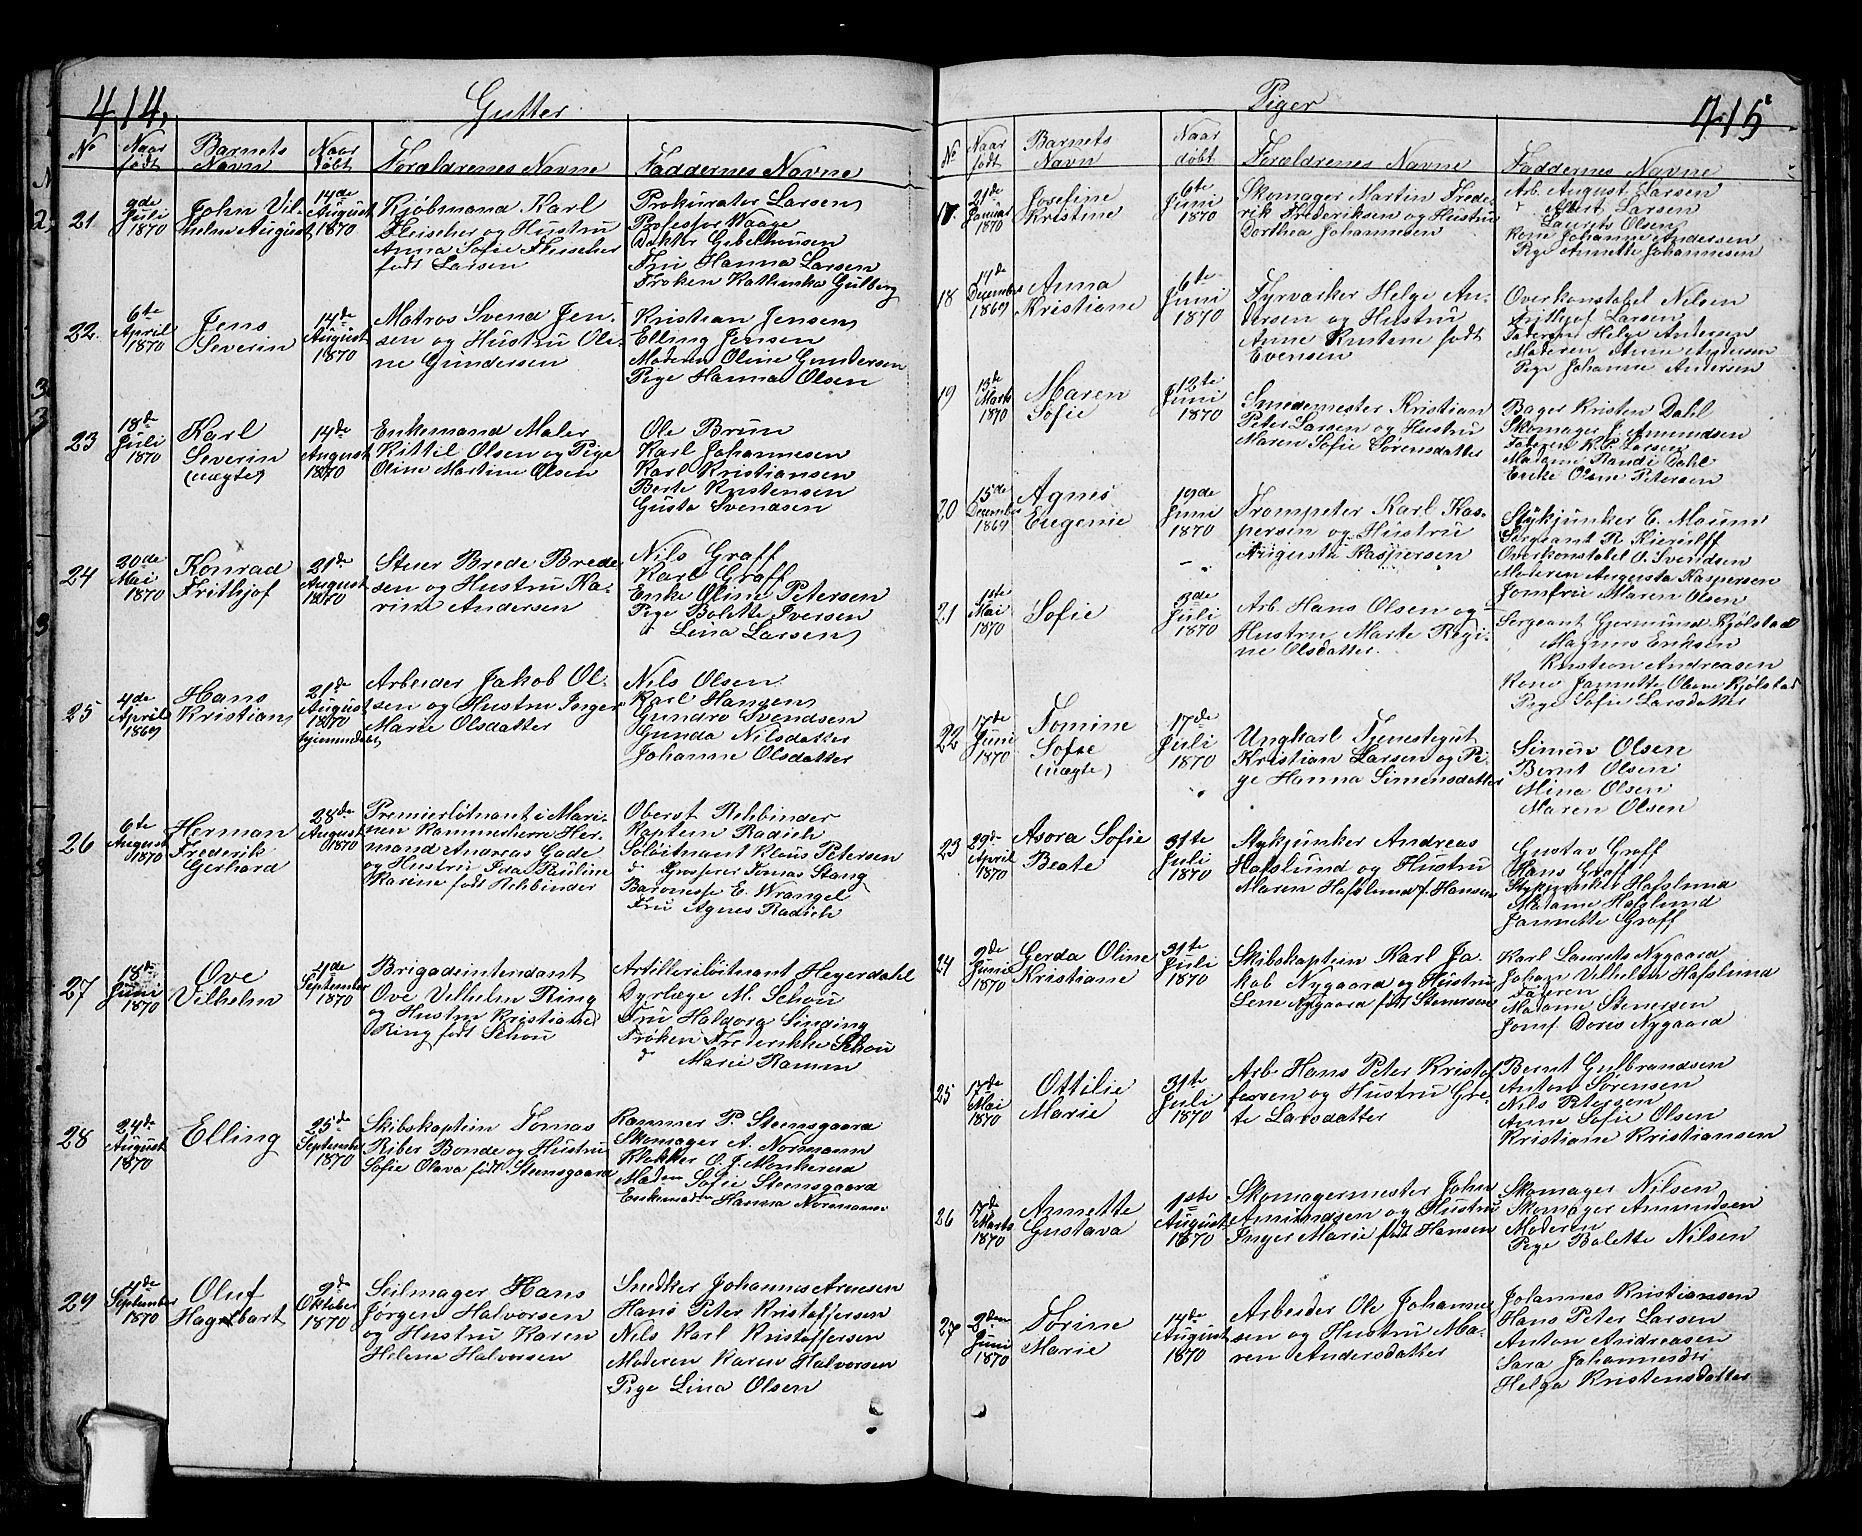 414.
Gutter
No
Naar født
Barnets Navn
Naar døbt
Forældrenes Navne
Faddernes Navne
21
9de Juli 1870
John Vilhelm August
14de August 1870
Kjøbmand Karl
Fleischer og Hustru
Anna Sofie Fleischer
født Larsen
Prokurator Larsen
Profesfor Waage
Doktor Gebelhousen
Fru Hanna Larsen
Frøken Kathinka Gulberg
22.
6te April 1870
Jens Severin
14de August 1870
Matros Svend Jen-
sen og Hustru Ole-
ne Gundersen
Kristian Jensen
Elling Jensen
Moderen Oline Gundersen
Pige Hanna Olsen
23
18de Juli 1870
Karl Severin (uægte)
14de August 1870
Enkemand Maler
Kittil Olsen og Pige
Oline Martine Olsen
Ole Brun
Karl Johannesen
Karl Kristiansen
Berte Kristensen
Gusta Svendsen
24
20de Mai 1870
Konrad Frithjof
21de August 1870
Stuer Brede Brede
sen og Hustru Ka-
rine Andersen
Nils Graff
Karl Graff
Enke Oline Petersen
Pige Bolette Iversen
" Lina Larsen
25
4de April 1869
Hans Kristian
21de August 1870
hjemmedøbt
Arbeider Jakob Ol-
sen og Hustru Inger
Marie Olsdatter
Nils Olsen
Karl Hansen
Gundro Svendsen
Gunda Nilsdatter
Johanne Olsdatter
26
6te August 1870
Herman Frederik Gerhard
28de August 1870
Premierløtnant i Mari-
nen Kammerherre Her-
mand Andreas Gade
og Hustru Ida Pauline
Karine født Rehbinder
Oberst Rehbinder
Kaptein Radich
Søløitnant Klaus Petersen
do Grosserer Tomas Stang
Baronesse E. Wrangel
Fru Agnes Radich
27
18de Juni 1870
Ove Vilhelm
4de September 1870
Brigadeintendant
Ove Vilhelm Ring
og Hustru Kristiane
Ring født Schou
Artilleriløitnant Heyerdahl
Dyrlæge M. Schou
Fru Haldora Sinding
Frøken Frederikke Schou
do Marie Ramm
28
24de August 1870
Elling
25de September 1870
Skibskaptein Tomas
Riber Bonde og Hustru
Sofie Olava født Steensgaard
Kammer P. Steensgaard
Skomager A. Normann
Klokker O. J. Monkerud
Madm Sofie Steensgaard
Enkemadm Hanna Normann
29
4de September 1870
Oluf Hagelbart
9de Oktober 1870
Seilmager Hans
Jørgen Halvorsen
og Hustru Karen
Helene Halvorsen
Snedker Johannes Arnesen
Hans Peter Kristoffersen
Nils Karl Kristoffersen
Moderen Karen Halvorsen
Pige Lina Olsen
Piger
415
No
Naar født
Barnets Navn
Naar døbt
Forældrenes Navne
Faddernes Navne
17.
21de Januar 1870
Josefine Kristine
6te Juni 1870
Skomager Martin Frede-
rik Frederiksen og Hustru
Dorthea Johannesen
Arb. August Larsen
" Albert Larsen
Laurits Olsen
Kone Johanne Andersen
Pige Annette Johannesen
18
14de December 1869
Anna Kristiane
6te Juni 1870
Fyrvarker Helge An-
dersen og Hustru
Anne Kristene født
Evensen
Overkonstabel Nilsen
Frithjof Larsen
Faderen Helge Andersen
Moderen Anne Andersen
Pige Johanne Andersen
19
13de Marts 1870
Maren Sofie
12te Juni 1870
Smedemester Kristian
Peter Larsen og Hustru
Maren Sofie Sørensdatter
Bager Kristen Dahl
Skomager J. Amundsen
Faderen K. P. Larsen
Madame Randi Dahl
Enke Oline Petersen
20
15de December 1869
Agnes Eugenie
19de Juni 1870
Trompeter Karl Kas-
persen og Hustru
Augusta Kaspersen
Stykjunker C. Moum
Sergeant R. Kierulff
Overkonstabel O. Svendsen
Moderen Augusta Kaspersen
Jomfru Maren Olsen
21
1ste Mai 1870
Sofie
3de Juli 1870
Arb. Hans Olsen og
Hustru Marte Regi-
ne Olsdatter
Sergeant Gjermund Kjølstad
Magnus Eriksen
Kristian Andreasen
Kone Jannette Olava Kjølstad
Pige Sofie Larsdatter
22
17de Juni 1870
Tomine Sofie (uægte)
17de Juli 1870
Ungkarl Tjenestegut
Kristian Larsen og Pi-
ge Hanna Simensdatter
Simen Olsen
Bernt Olsen
Mina Olsen
Maren Olsen
23
29de April 1870
Asora Sofie Beate
31te Juli 1870
Stykjunker Andreas
Hafslund og Hustru
Maren Hafslund f. Hansen
Gustav Graff
Hans Graff
Stykjunker Hafslund
Madame Hafslund
Jannette Graff
24
9de Juni 1870
Gerda Oline Kristiane
31te Juli 1870
Skibskaptein Karl Ja-
kob Nygaard og Hustru
Lene Nygaard født Stenersen
Karl Laurits Nygaard
Johan Vilhelm Hafslund
Faderen
Madame Stenersen
Jomf. Doris Nygaard
25
17de Mai 1870
Ottilie Marie
31te Juli 1870
Arb. Hans Peter Kristof
fersen og Hustru Gre-
te Larsdatter
Bernt Gulbrandsen
Anton Sørensen
Nils Petersen
Anne Sofie Olsen
Kristiane Kristiansen
26
17de Marts 1870
Annette Gustava
1ste August 1870
Skomagermester John
Amundsen og Hustru
Inger Marie født Hansen
Skomager Nilsen
Skomager Amundsen
Moderen
Pige Bolette Nilsen
27
2den Juni 1870
Torine Marie
14de August 1870
Arbeider Ole Johanne
sen og Hustru Ma-
ren Andersdatter
Johannes Kristiansen
Hans Peter Larsen
Anton Andreasen
Sara Johannesdtr
Helga Kristensdatter